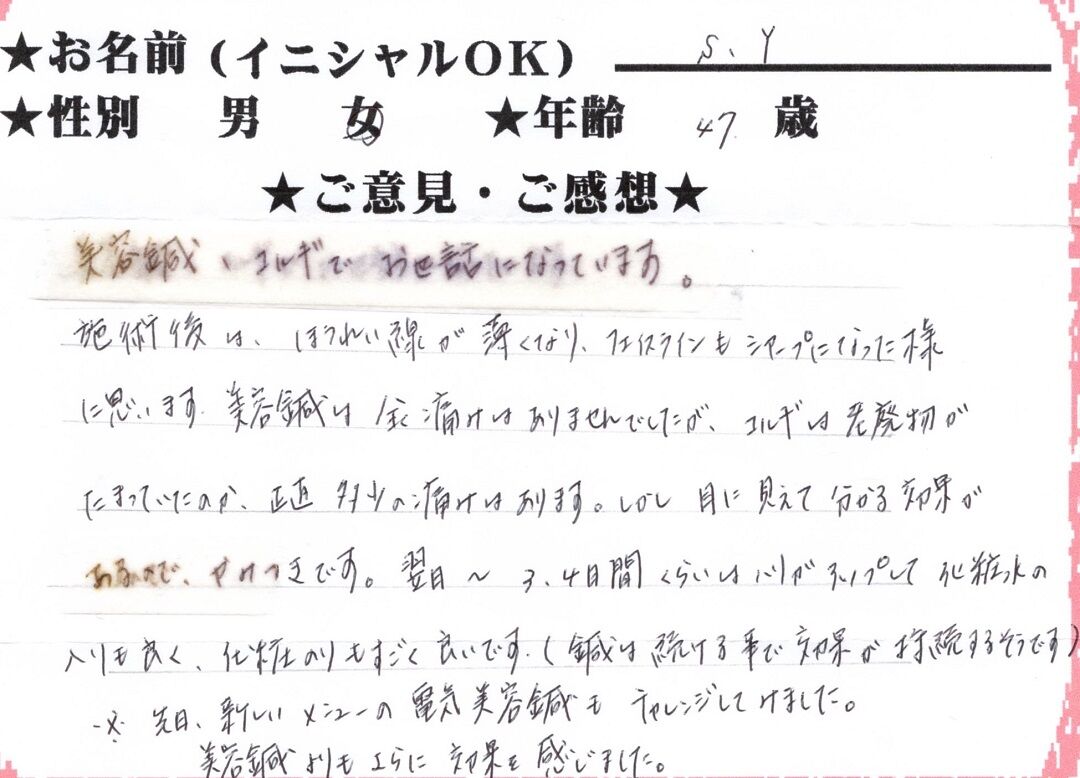 ★お名前(イニシャルOK) S.Y
★性別 男 女 ★年齢 47 歳
★ご意見・ご感想★
美容鍼、コルギでお世話になっています。
施術後は、ほうれい線が薄くなり、フェイスラインもシャープになった様
に思います。美容鍼は全く痛みはありませんでしたが、コルギは老廃物が
たまっていたのか、正直多少の痛みはあります。しかし目に見えて分かる効果が
あるので、やみつきです。翌日～3、4日間くらいはハリがアップして化粧水の
入りも良く、化粧のりもすごく良いです。(鍼は続ける事で効果が持続するそうです)
※先日、新しいメニューの電気美容鍼もチャレンジしてけました。
美容鍼よりもさらに効果を感じました。